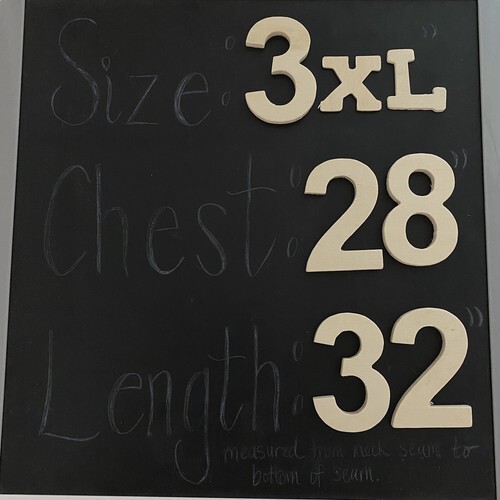 Size: 3XL"
Chest: 28"
Length: 32"
measured from neck seam to
bottom of seam.